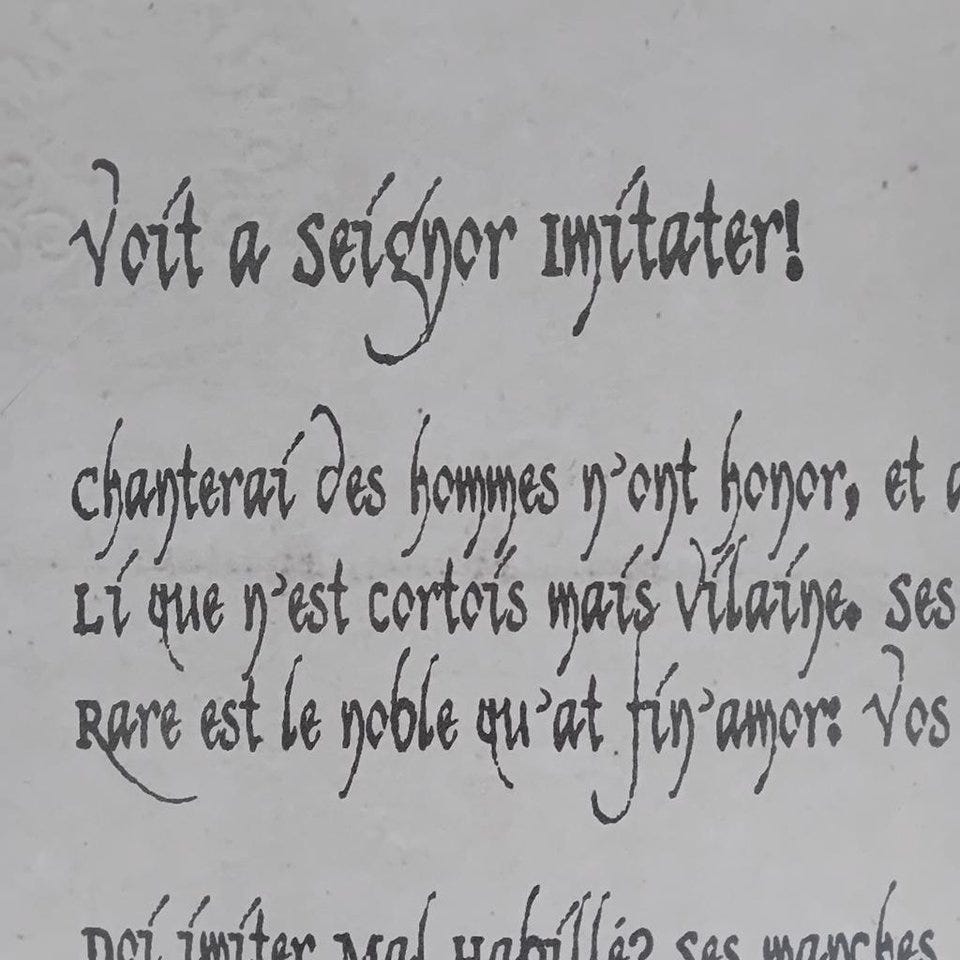 Voit a Seignor Imitater!
Chanterai des hommes n'ont honor, et
Li que n'est cortois mais vilaine. Ses
Rare est le noble qu'at fin'amor: Vos
Doi imiter Mal Habillé? Ses manches